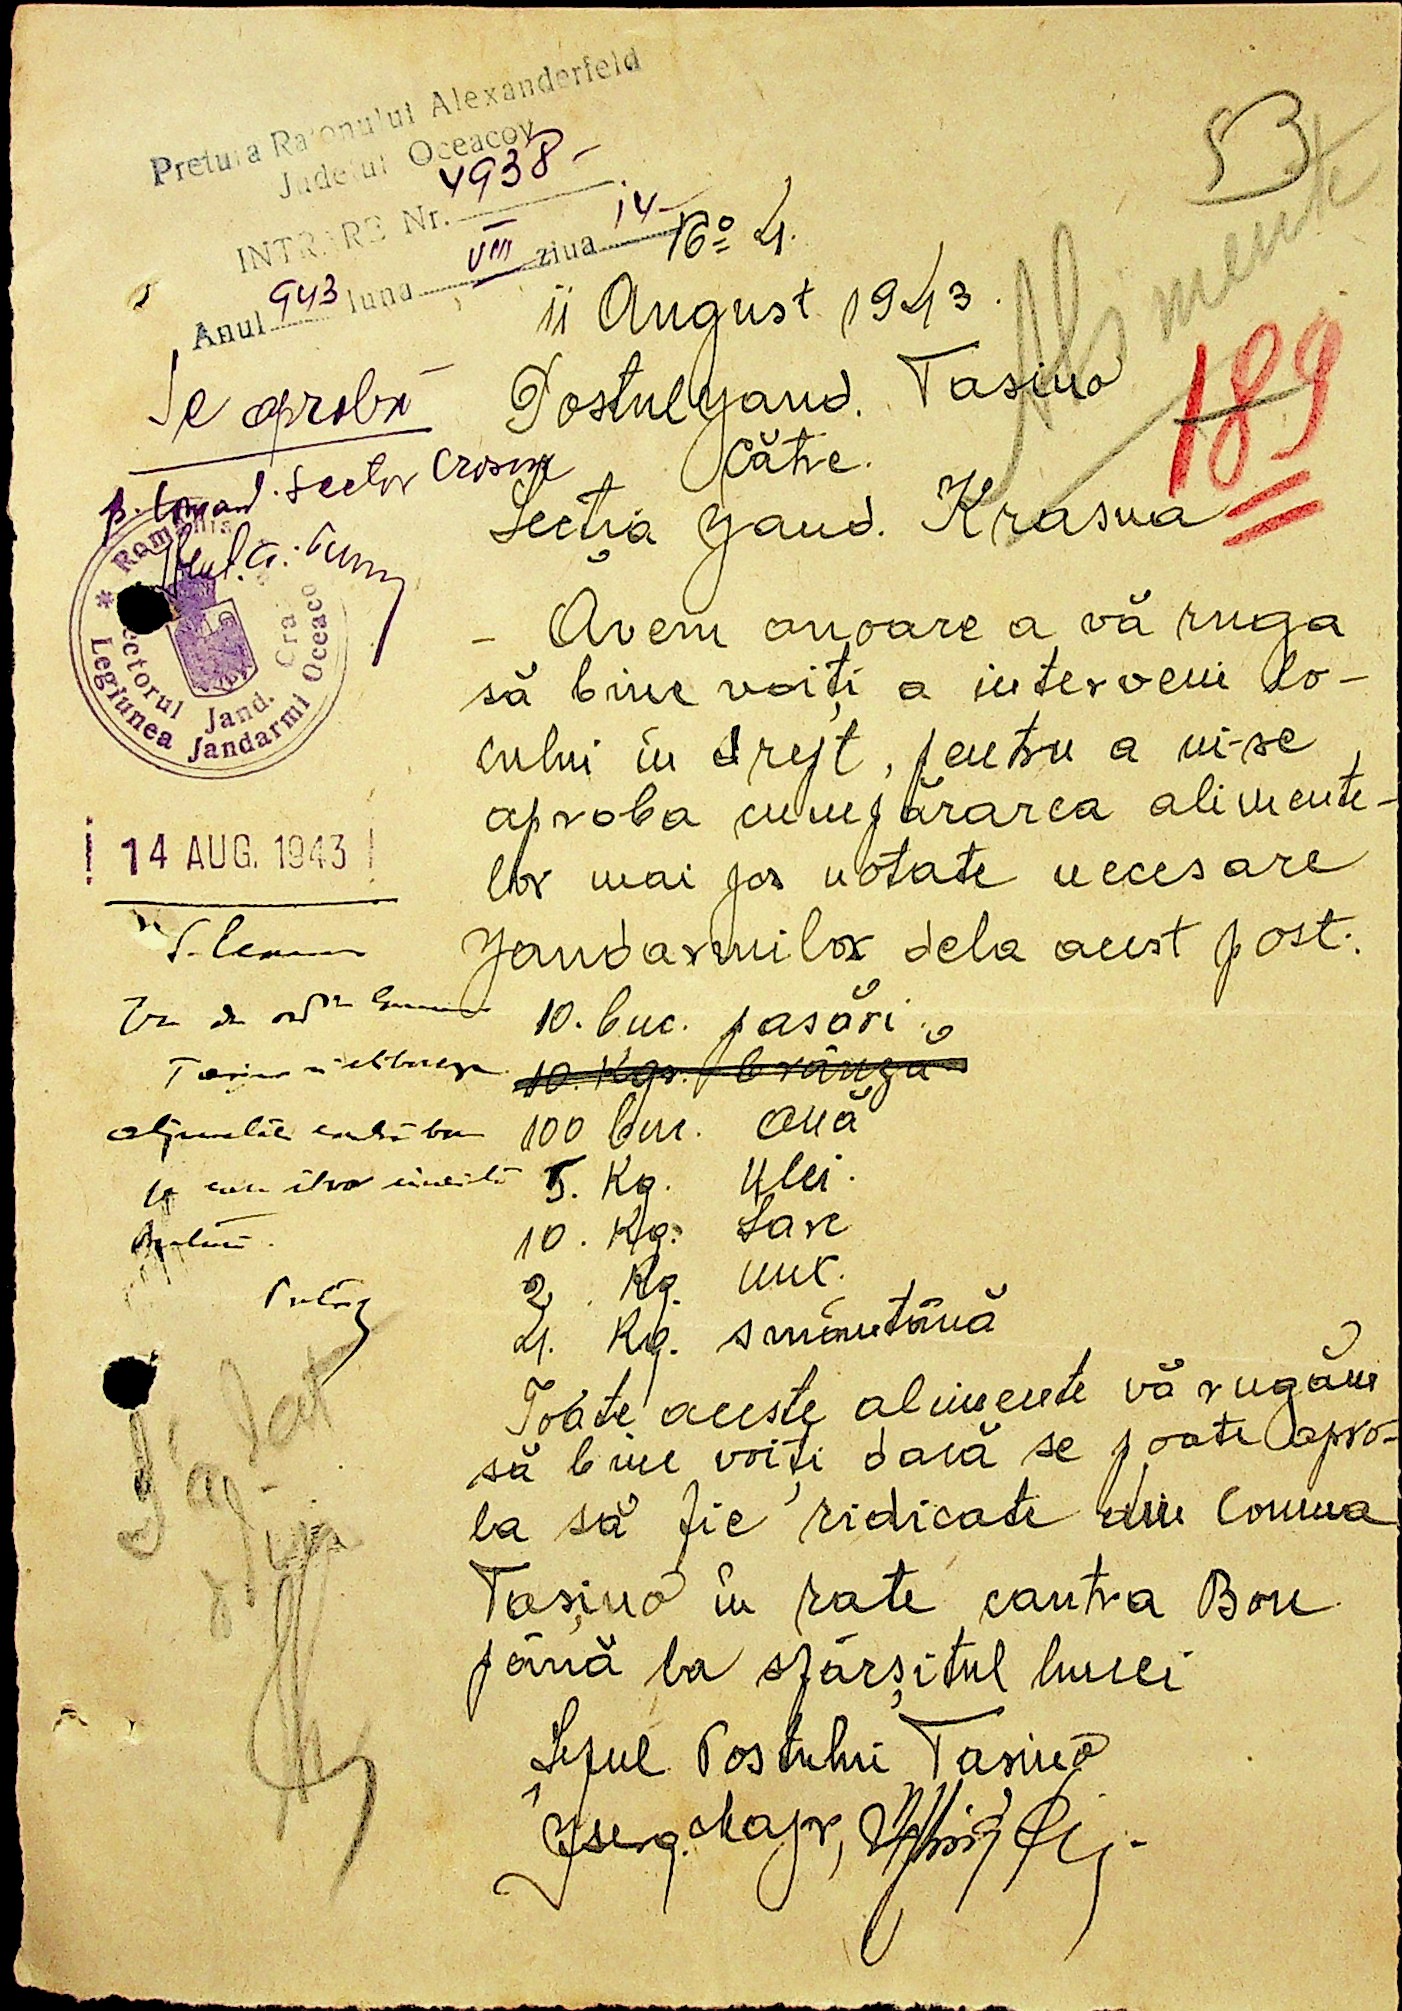 Pretura Raionului Alexanderfeld
Judetul Oceacov
INTRARE Nr. 4938
Anul 943 luna VIII ziua 14
53
Alimente
189
No 4.
11 August 1943.
Postul Jand. Tasino
Către.
Secția Jand. Krasna
Se aprobă
p. Comand. Sector
România
Sectorul Jand. Cra
Legiunea Jandarmi Oceaco
14 AUG. 1943
- Avem onoare a vă ruga
să bine voiți a interveni lo-
cului în drept, pentru a ni-se
aproba cumpărarea alimente-
lor mai jos notate necesare
Jandarmilor dela acest post.
10. buc. pasări.
10. Kgr. brânză
100 buc. ouă
5. Kg. Ulei.
10. Kg. Sare
2 Kg. unt.
4. Kg. smântână
Toate aceste alimente vă rugăm
să bine voiți dacă se poate apro-
ba să fie ridicate din Comuna
Tasino în rate contra Bon
până la sfârșitul lunei
Șeful Postului Tasino
Jserg. Major,
S'a dat